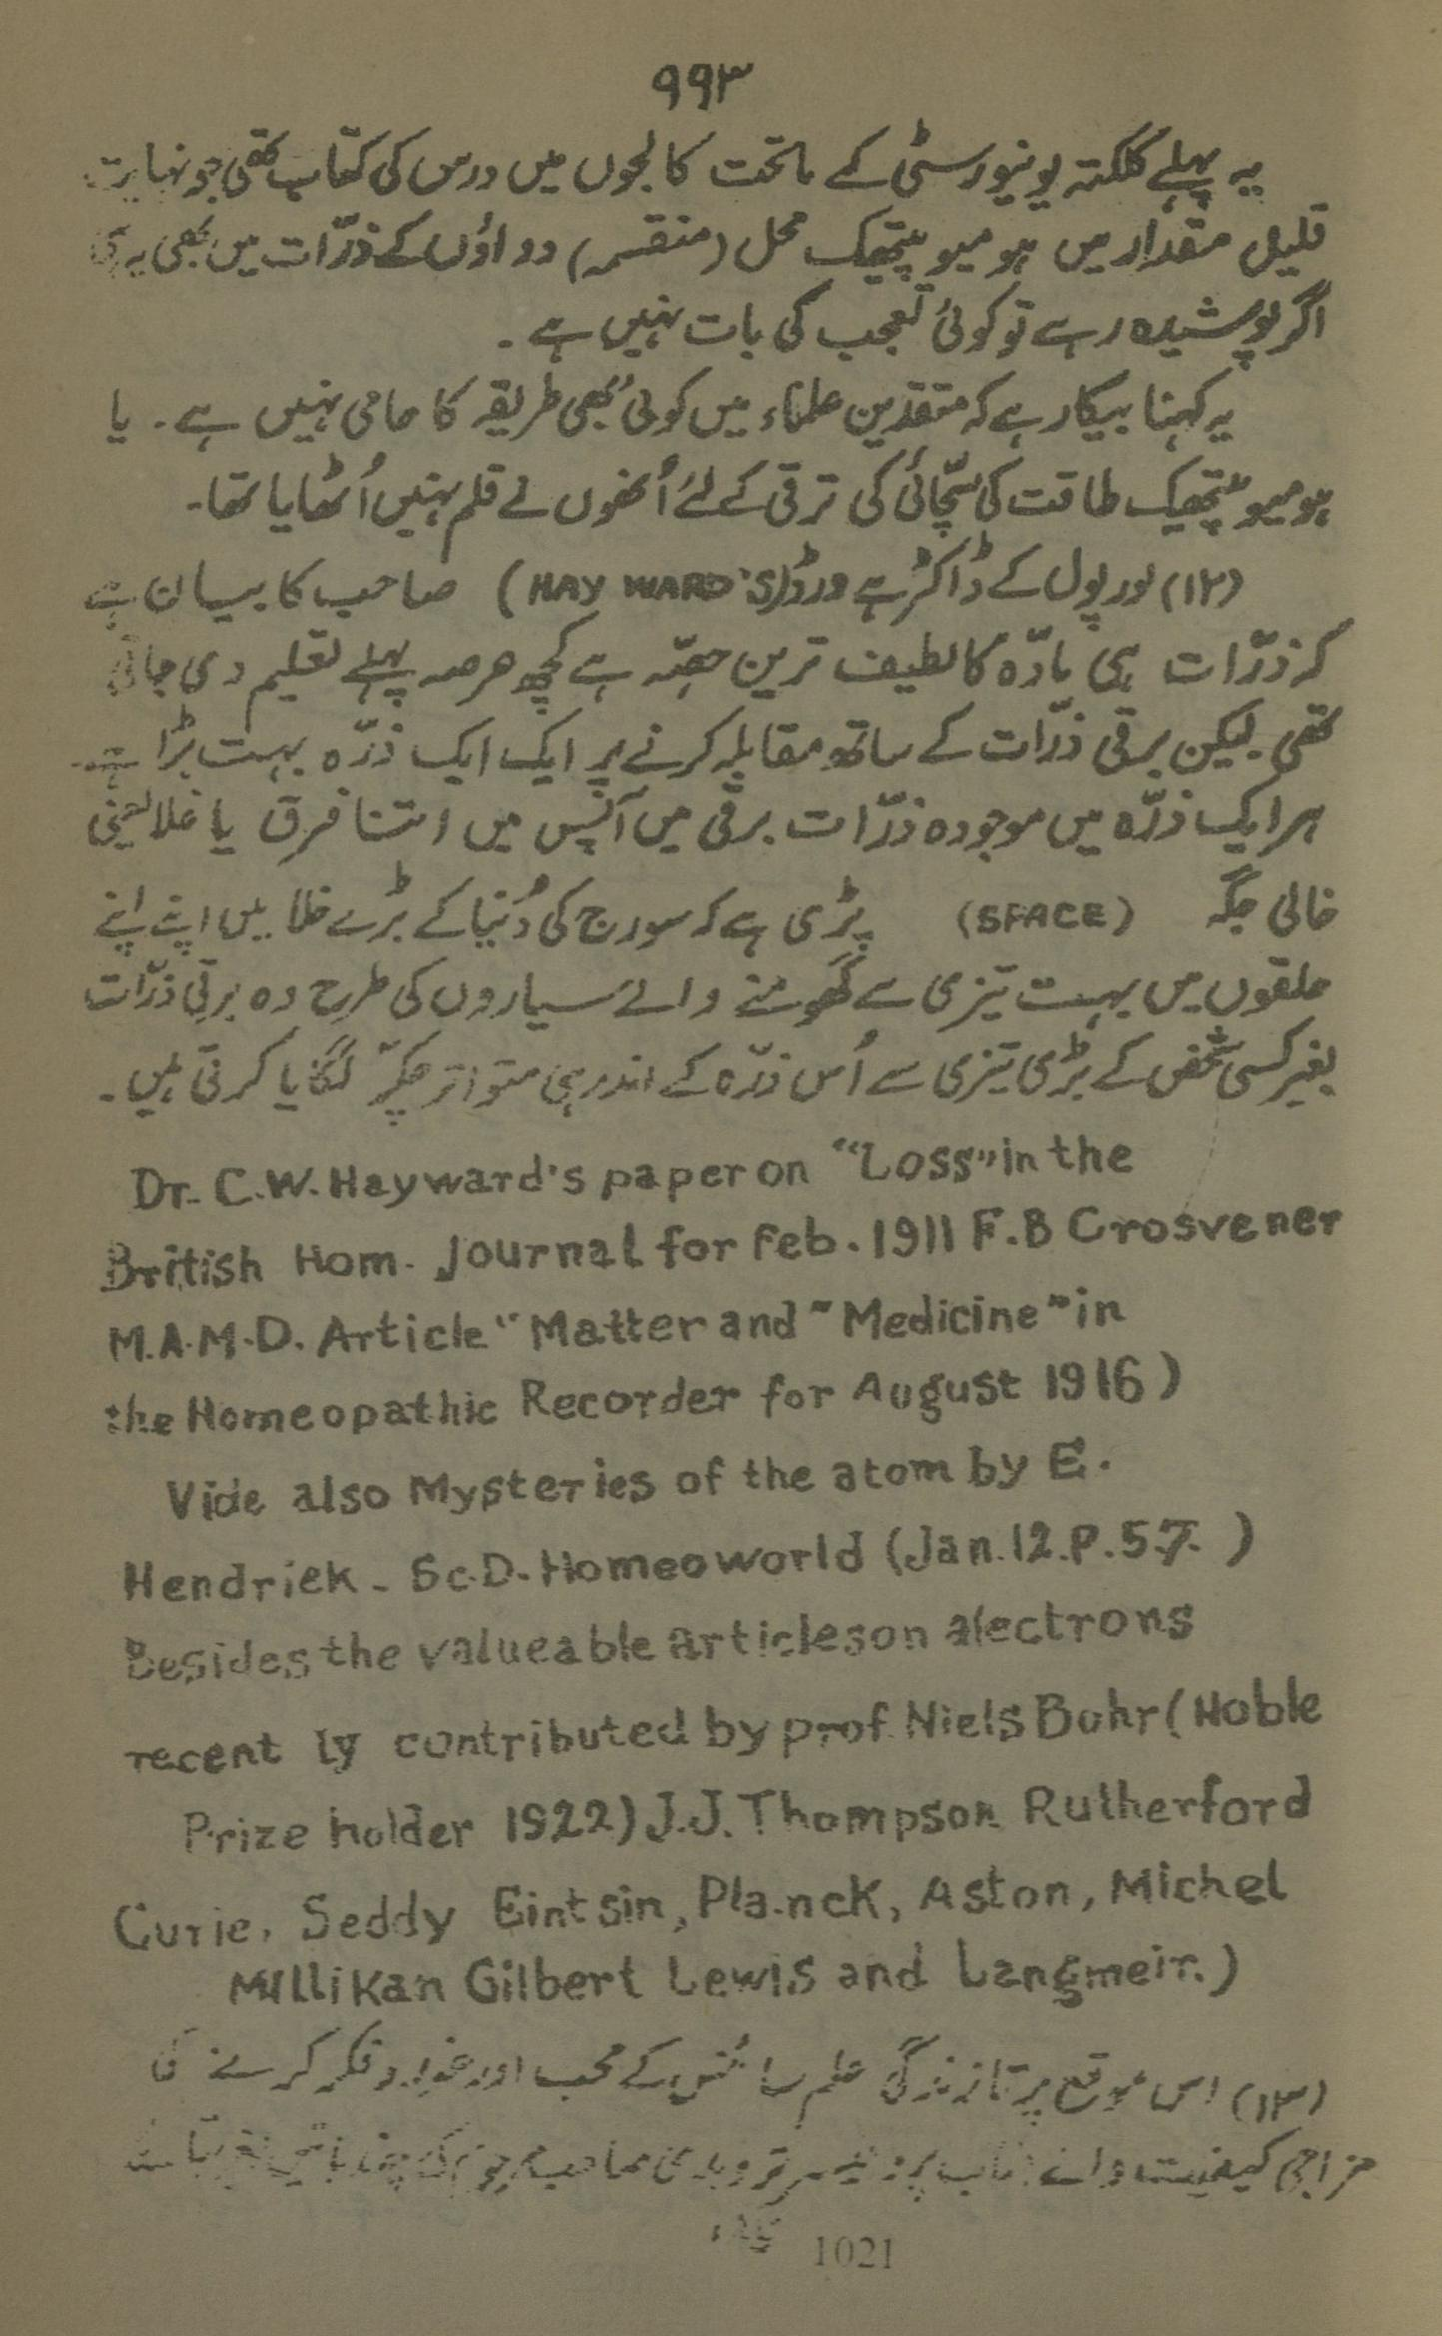 ۹۹۳
یہ پہلے کلکتہ یونیورسٹی کے ماتحت کالجوں میں درس کی کتاب تھی جو نہایت
قلیل مقدار میں ہومیوپیتھک محل (منقسمہ) دواؤں کے ذرّات میں بھی
اگر پوشیدہ رہے تو کوئی تعجب کی بات نہیں ہے ۔
یہ کہنا بیکار ہے کہ متقدین علماء میں کوئی بھی طریقہ کا حامی نہیں ہے ۔ یا
ہومیوپیتھیک طاقت کی سچّائی کی ترقی کے لئے اُنھوں نے قلم نہیں اُٹھایا تھا ۔
(۱۲) لورپول کے ڈاکٹر ہے ورڈ (HAY WARD'S) صاحب کا بیان ہے
کہ ذرّات ہی مادّہ کا لطیف ترین حصّہ ہے کچھ عرصہ پہلے تعلیم دی جاتی
تھی لیکن برقی ذرّات کے ساتھ مقابلہ کرنے پر ایک ایک ذرّہ بہت بڑا ہے
ہر ایک ذرّہ میں موجودہ ذرّات برقی میں آپس میں اتنا فرق یا خلا یعنی
خالی جگہ (SPACE) پڑی ہے کہ سورج کی دُنیا کے بڑے خلا میں اپنے اپنے
حلقوں میں بہت تیزی سے گھومنے والے سیاروں کی طرح وہ برقی ذرّات
بغیر کسی شخص کے بڑی تیزی سے اُس ذرّہ کے اندر ہی متواتر چکّر لگایا کرتی ہیں ۔
Dr. C.W. Hayward's paper on "Loss" in the
British Hom. Journal for Feb. 1911 F.B Grosvener
M.A.M.D. Article "Matter and "Medicine" in
the Homeopathic Recorder for August 1916)
Vide also Mysteries of the atom by E.
Hendriek - Sc.D. Homeoworld (Jan.12.P.57. )
Besides the valueable articles on alectrons
recent ly contributed by prof. Niels Bohr (Noble
Prize holder 1922) J.J. Thompson Rutherford
Curie, Seddy Eintsin, Planck, Aston, Michel
Millikan Gilbert Lewis and Langmeir.)
(۱۳) اس موقع پر تا زندگی علم سائنس کے محب اور غور و فکر کرنے کی
مزاجی کیفیت والے جناب پروفیسر ترویدی صاحب
1021